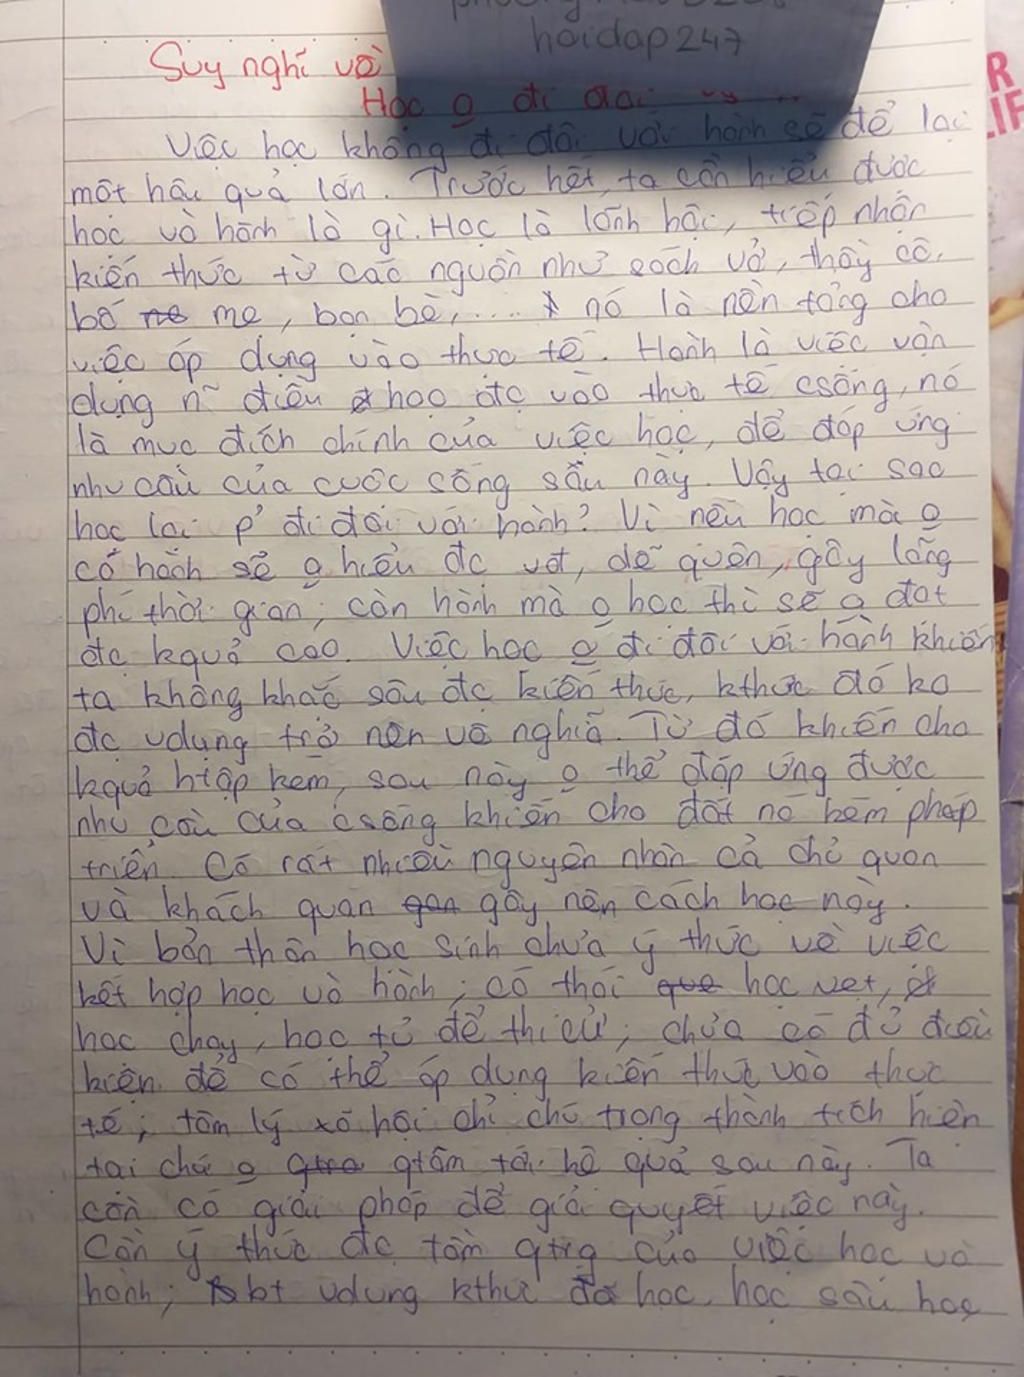 hoidap247
Suy nghĩ về
Học o đi đôi
Việc học không đi đôi với hành sẽ để lại
một hậu quả lớn. Trước hết, ta cần hiểu được
học và hành là gì. Học là lĩnh hội, tiếp nhận
kiến thức từ các nguồn như sách vở, thầy cô,
bố mẹ, bạn bè,.... nó là nền tảng cho
việc áp dụng vào thực tế. Hành là việc vận
dụng n~ điều học đc vào thực tế csống, nó
là mục đích chính của việc học, để đáp ứng
nhu cầu của cuộc sống sau này. Vậy tại sao
học lại p' đi đôi với hành? Vì nếu học mà o
có hành sẽ o hiểu đc vđ, dễ quên, gây lãng
phí thời gian; còn hành mà o học thì sẽ o đạt
đc kquả cao. Việc học o đi đôi với hành khiến
ta không khắc sâu đc kiến thức, kthức đó ko
đc vdụng trở nên vô nghĩa. Từ đó khiến cho
kquả htập kém, sau này o thể đáp ứng được
nhu cầu của csống khiến cho đất nc kém pháp
triển. Có rất nhiều nguyên nhân cả chủ quan
và khách quan gây nên cách học này.
Vì bản thân học sinh chưa ý thức về việc
kết hợp học và hành; có thói học vẹt,
học chay, học tủ để thi cử; chưa có đủ điều
kiện để có thể áp dụng kiến thức vào thực
tế; tâm lý xã hội chỉ chú trọng thành tích hiện
tại chứ o qtâm tới hệ quả sau này. Ta
cần có giải pháp để giải quyết việc này.
Cần ý thức đc tầm qtrg của việc học và
hành; bt vdụng kthức đã học, học sâu học